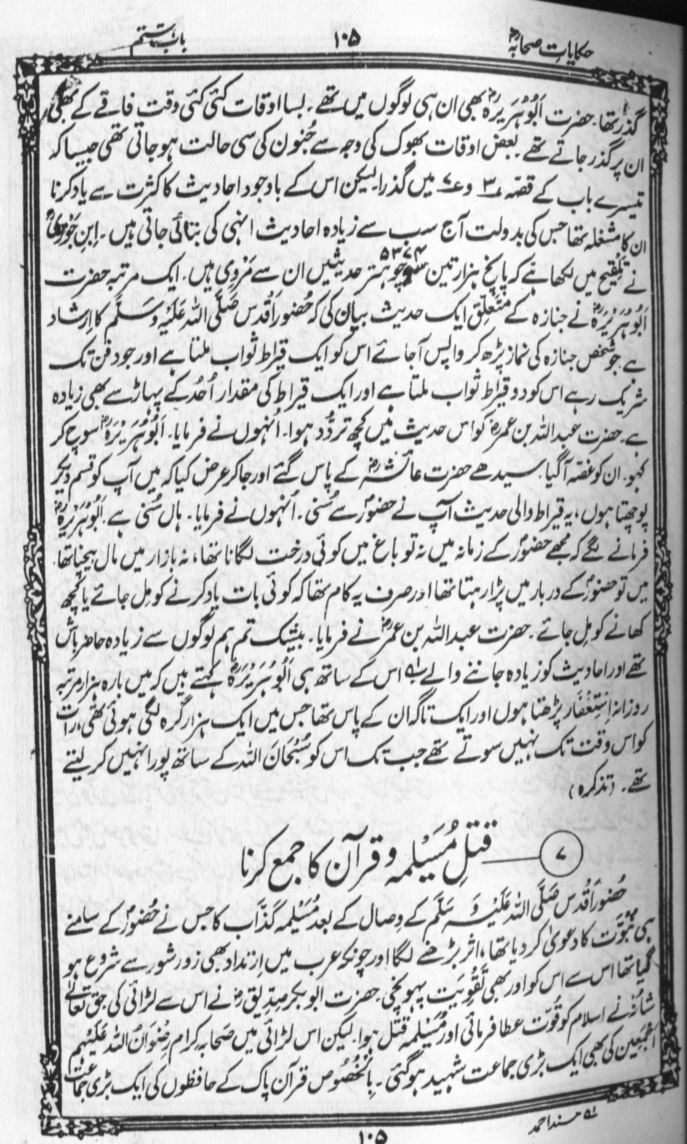 حکایاتِ صحابہؓ ۱۰۵ باب ہشتم
گذر تھا۔ حضرت ابُوہُریرہؓ بھی ان ہی لوگوں میں تھے۔ بسا اوقات کئی کئی وقت فاقے کے بھی
ان پر گذر جاتے تھے۔ بعض اوقات بھوک کی وجہ سے جُنون کی سی حالت ہو جاتی تھی جیسا کہ
تیسرے باب کے قصہ ۳ و ۷ میں گذرا لیکن اس کے باوجود احادیث کا کثرت سے یاد کرنا
ان کا مشغلہ تھا جس کی بدولت آج سب سے زیادہ احادیث انہی کی بتائی جاتی ہیں۔ ابن جوزیؒ
نے تلقیح میں لکھا ہے کہ پانچ ہزار تین سو چوہتر ۵۳۷۴ حدیثیں ان سے مَروی ہیں۔ ایک مرتبہ حضرت
ابُوہُریرہؓ نے جنازہ کے متعلق ایک حدیث بیان کی کہ حُضورِ اقدس صَلَّی اللہُ عَلَیْہِ وَسَلَّم کا ارشاد
ہے جو شخص جنازہ کی نماز پڑھ کر واپس آ جائے اس کو ایک قیراط ثواب ملتا ہے اور جو دفن تک
شریک رہے اس کو دو قیراط ثواب ملتا ہے اور ایک قیراط کی مقدار اُحُد کے پہاڑ سے بھی زیادہ
ہے۔ حضرت عبداللہ بن عمرؓ کو اس حدیث میں کچھ تردُّد ہوا۔ اُنہوں نے فرمایا۔ ابُوہُریرہؓ سوچ کر
کہو۔ ان کو غصہ آ گیا۔ سیدھے حضرت عائشہؓ کے پاس گئے اور جا کر عرض کیا کہ میں آپ کو قسم دیکر
پوچھتا ہوں، یہ قیراط والی حدیث آپ نے حضورؐ سے سُنی۔ اُنہوں نے فرمایا۔ ہاں سُنی ہے۔ ابُوہُریرہؓ
فرمانے لگے کہ مجھے حضورؐ کے زمانہ میں نہ تو باغ میں کوئی درخت لگانا تھا، نہ بازار میں مال بیچنا تھا۔
میں تو حضورؐ کے دربار میں پڑا رہتا تھا اور صرف یہ کام تھا کہ کوئی بات یاد کرنے کو مل جائے یا کچھ
کھانے کو مل جائے۔ حضرت عبداللہ بن عمرؓ نے فرمایا۔ بیشک تم ہم لوگوں سے زیادہ حاضر باش
تھے اور احادیث کو زیادہ جاننے والے ؎۱ اس کے ساتھ ہی ابُوہُریرہؓ کہتے ہیں کہ میں بارہ ہزار مرتبہ
روزانہ اِستِغفار پڑھتا ہوں اور ایک تاگہ ان کے پاس تھا جس میں ایک ہزار گرہ لگی ہوئی تھی، رات
کو اس وقت تک نہیں سوتے تھے جب تک اس کو سُبْحَانَ اللہ کے ساتھ پورا نہیں کر لیتے
تھے۔ (تذکرہ)
۷ قتلِ مُسَیْلمہ و قرآن کا جمع کرنا
حُضورِ اقدس صَلَّی اللہُ عَلَیْہِ وَسَلَّم کے وصال کے بعد مُسَیْلمہ کذّاب کا جس نے حضورؐ کے سامنے
ہی نبوّت کا دعویٰ کر دیا تھا، اثر بڑھنے لگا اور چونکہ عرب میں اِرتداد بھی زور شور سے شروع ہو
گیا تھا اس سے اس کو اور بھی تَقوِیت پہونچی۔ حضرت ابوبکر صدیقؓ نے اس سے لڑائی کی حق تعالیٰ
شانُہٗ نے اسلام کو قُوّت عطا فرمائی اور مُسَیْلمہ قتل ہوا۔ لیکن اس لڑائی میں صَحابہ کرام رِضْوَانُ اللہِ عَلَیْہِمْ
اَجْمَعِین کی بھی ایک بڑی جماعت شہید ہو گئی۔ بِالخُصُوص قرآن پاک کے حافظوں کی ایک بڑی جماعت
؎۱ مسند احمد
۱۰۵